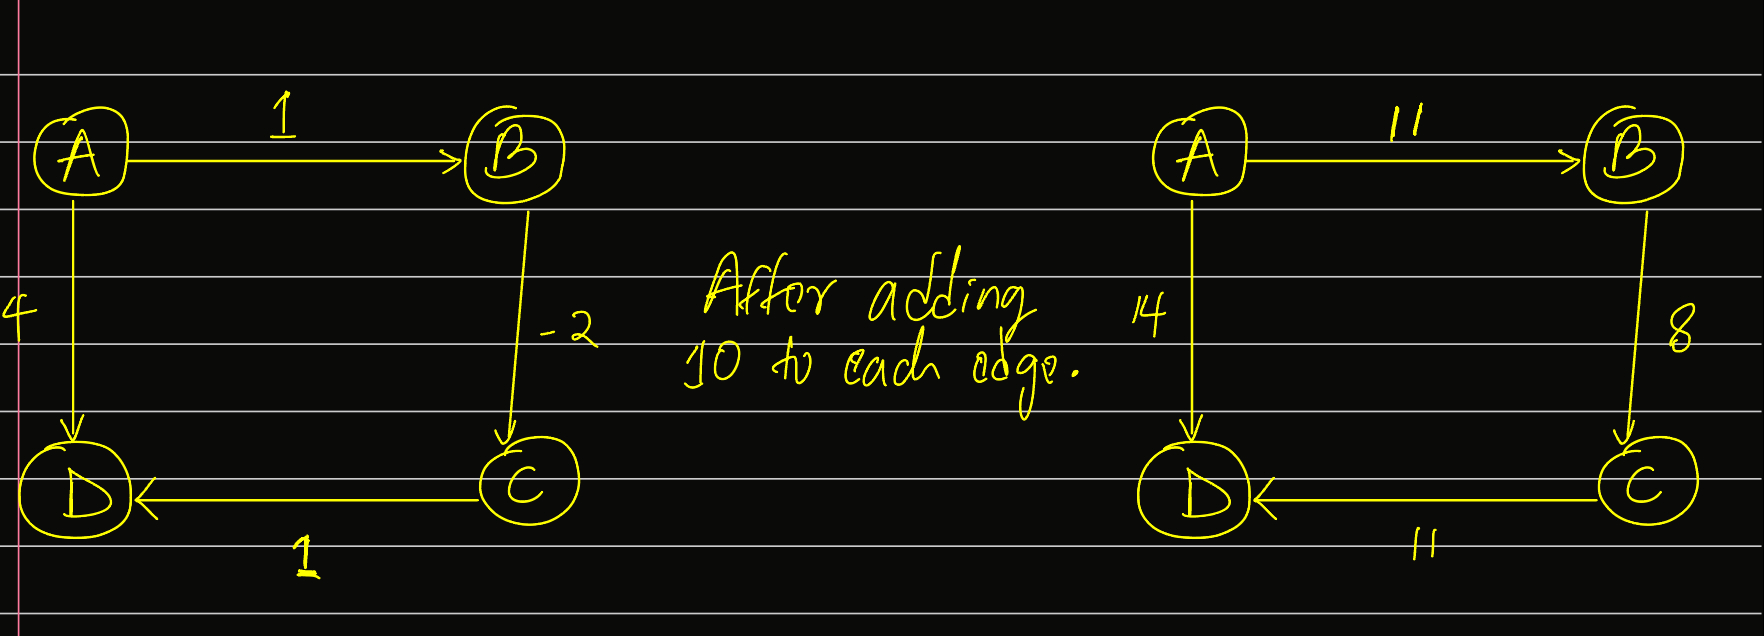 1
A
B
4
-2
D
C
1
After adding
10 to each edge.
11
A
B
14
8
D
C
11